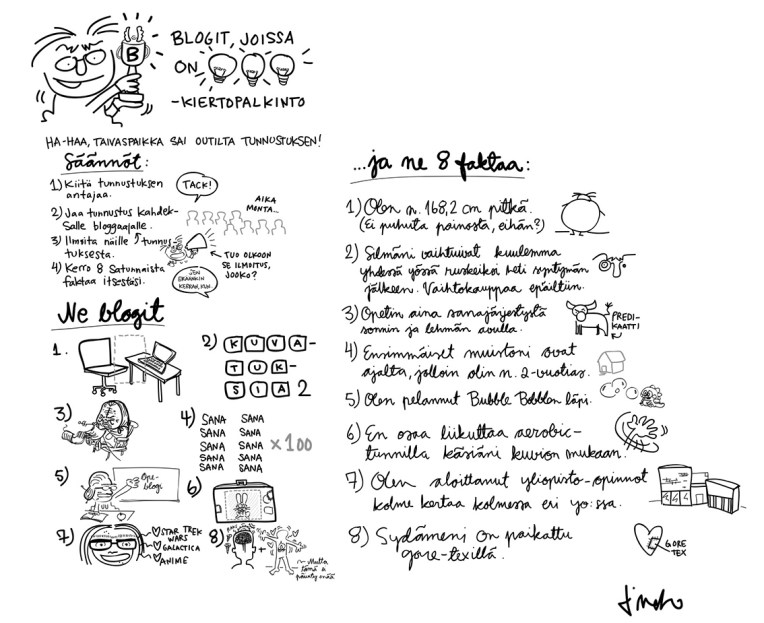 B
BLOGIT, JOISSA
ON
-KIERTOPALKINTO
HA-HAA, TAIVASPAIKKA SAI OUTILTA TUNNUSTUKSEN!
Säännöt:
1) Kiitä tunnustuksen
antajaa.
TACK!
2) Jaa tunnustus kahdek-
salle bloggaajalle.
AIKA
MONTA...
3) Ilmoita näille tunnus
tuksesta.
TUO OLKOON
SE ILMOITUS,
JOOKO?
4) Kerro 8 satunnaista
faktaa itsestäsi.
Ne blogit
1.
2) KUVA-
TUK-
SIA 2
3)
4)
SANA SANA
SANA SANA
SANA SANA
SANA SANA
SANA SANA
x100
5)
Ope-
blogi
6)
7)
STAR TREK
WARS
GALACTICA
ANIME
8)
+
Mutta
tämä ei
päivity enää
...ja ne 8 faktaa:
1) Olen n. 168,2 cm pitkä.
(Ei puhuta painosta, eihän?)
2) Silmäni vaihtuivat kuulemma
yhdessä yössä ruskeiksi heti syntymän
jälkeen. Vaihtokauppaa epäiltiin.
3) Opetin aina sanajärjestystä
sonnin ja lehmän avulla.
PREDI-
KAATTI
4) Ensimmäiset muistoni ovat
ajalta, jolloin olin n. 2-vuotias.
5) Olen pelannut Bubble Bobblen läpi.
6) En osaa liikuttaa aerobic-
tunnilla käsiäni kuvion mukaan.
7) Olen aloittanut yliopisto-opinnot
kolme kertaa kolmessa eri yo:ssa.
8) Sydämeni on paikattu
gore-texillä.
GORE
TEX